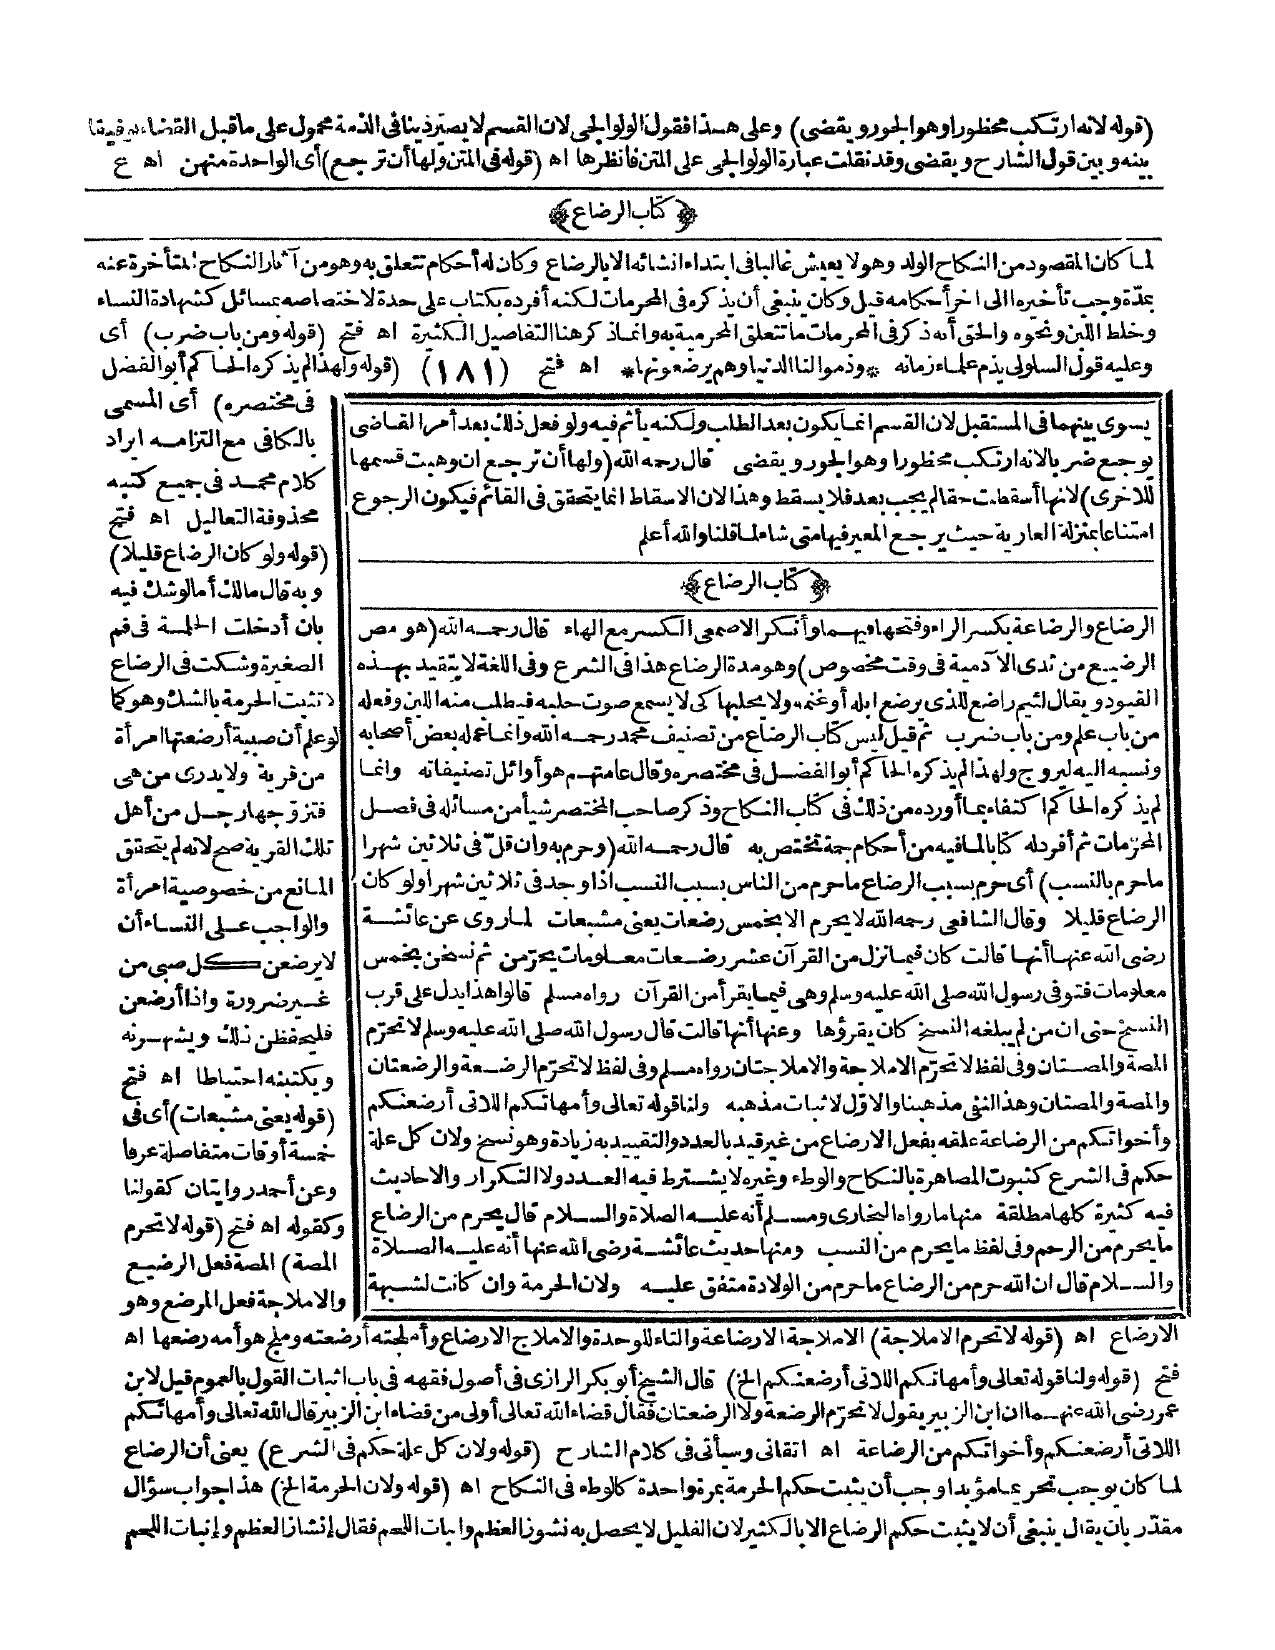 (قوله لانه ارتكب محظورا وهو الجور ويقضى) وعلى هذا فقول الولوالجى لان القسم لا يصير دينا فى الذمة محمول على ما قبل القضاء توفيقا
بينه وبين قول الشارح ويقضى وقد نقلت عبارة الولوالجى على المتن فانظرها اه (قوله فى المتن ولها أن ترجع) أى الواحدة منهن اه ع
﴿كتاب الرضاع﴾
لما كان المقصود من النكاح الولد وهو لا يعيش غالبا فى ابتداء انشائه الا بالرضاع وكان له أحكام تتعلق به وهو من آثار النكاح المتأخرة عنه
بمدة وجب تأخيره الى اخر أحكامه قيل وكان ينبغى أن يذكره فى المحرمات لكنه أفرده بكتاب على حدة لاختصاصه بمسائل كشهادة النساء
وخلط اللبن ونحوه والحق أنه ذكر فى المحرمات ما تتعلق المحرمية به وانما ذكر هنا التفاصيل الكثيرة اه فتح (قوله ومن باب ضرب) أى
وعليه قول السلولى يذم علماء زمانه *وذموا لنا الدنيا وهم يرضعونها* اه فتح (١٨١) (قوله ولهذا لم يذكره الحاكم أبو الفضل
فى مختصره) أى المسمى
بالكافى مع التزامه ايراد
كلام محمد فى جميع كتبه
محذوفة التعاليل اه فتح
(قوله ولو كان الرضاع قليلا)
وبه قال مالك أما لو شك فيه
بان أدخلت الحلمة فى فم
الصغيرة وشكت فى الرضاع
لا تثبت الحرمة بالشك وهو كما
لو علم أن صبية أرضعتها امرأة
من قرية ولا يدرى من هى
فتزوجها رجل من أهل
تلك القرية صح لانه لم يتحقق
المانع من خصوصية امرأة
والواجب على النساء أن
لا يرضعن كل صبى من
غير ضرورة واذا أرضعن
فليحفظن ذلك ويشهرنه
ويكتبنه احتياطا اه فتح
(قوله يعنى مشبعات) أى فى
خمسة أوقات متفاصلة عرفا
وعن أحمد روايتان كقولنا
وكقوله اه فتح (قوله لا تحرم
المصة) المصة فعل الرضيع
والاملاجة فعل المرضع وهو
يسوى بينهما فى المستقبل لان القسم انما يكون بعد الطلب ولكنه يأثم فيه ولو فعل ذلك بعد أمر القاضى
يوجع ضربا لانه ارتكب محظورا وهو الجور ويقضى قال رحمه الله (ولها أن ترجع ان وهبت قسمها
للاخرى) لانها أسقطت حقا لم يجب بعد فلا يسقط وهذا لان الاسقاط انما يتحقق فى القائم فيكون الرجوع
امتناعا بمنزلة العارية حيث يرجع المعير فيها متى شاء لما قلنا والله أعلم
﴿كتاب الرضاع﴾
الرضاع والرضاعة بكسر الراء وفتحها فيهما وأنكر الاصمعى الكسر مع الهاء قال رحمه الله (هو مص
الرضيع من ثدى الآدمية فى وقت مخصوص) وهو مدة الرضاع هذا فى الشرع وفى اللغة لا يتقيد بهذه
القيود ويقال لئيم راضع للذى يرضع ابله أو غنمه ولا يحلبها كى لا يسمع صوت حلبه فيطلب منه اللبن وفعله
من باب علم ومن باب ضرب ثم قيل ليس كتاب الرضاع من تصنيف محمد رحمه الله وانما عمله بعض أصحابه
ونسبه اليه ليروج ولهذا لم يذكره الحاكم أبو الفضل فى مختصره وقال عامتهم هو أوائل تصنيفاته وانما
لم يذكره الحاكم اكتفاء بما أورده من ذلك فى كتاب النكاح وذكر صاحب المختصر شيأ من مسائله فى فصل
المحرّمات ثم أفرد له كتابا لما فيه من أحكام جمة تختص به قال رحمه الله (وحرم به وان قلّ فى ثلاثين شهرا
ما حرم بالنسب) أى حرم بسبب الرضاع ما حرم من الناس بسبب النسب اذا وجد فى ثلاثين شهرا ولو كان
الرضاع قليلا وقال الشافعى رحمه الله لا يحرم الا بخمس رضعات يعنى مشبعات لما روى عن عائشة
رضى الله عنها أنها قالت كان فيما نزل من القرآن عشر رضعات معلومات يحرّمن ثم نسخن بخمس
معلومات فتوفى رسول الله صلى الله عليه وسلم وهى فيما يقرأ من القرآن رواه مسلم قالوا هذا يدل على قرب
النسخ حتى ان من لم يبلغه النسخ كان يقرؤها وعنها أنها قالت قال رسول الله صلى الله عليه وسلم لا تحرّم
المصة والمصتان وفى لفظ لا تحرّم الاملاجة والاملاجتان رواه مسلم وفى لفظ لا تحرّم الرضعة والرضعتان
والمصة والمصتان وهذا لنفى مذهبنا والاوّل لاثبات مذهبه ولنا قوله تعالى وأمهاتكم اللاتى أرضعنكم
وأخواتكم من الرضاعة علقه بفعل الارضاع من غير قيد بالعدد والتقييد به زيادة وهو نسخ ولان كل علة
حكم فى الشرع كثبوت المصاهرة بالنكاح والوطء وغيره لا يشترط فيه العدد ولا التكرار والاحاديث
فيه كثيرة كلها مطلقة منها ما رواه البخارى ومسلم أنه عليه الصلاة والسلام قال يحرم من الرضاع
ما يحرم من الرحم وفى لفظ ما يحرم من النسب ومنها حديث عائشة رضى الله عنها أنه عليه الصلاة
والسلام قال ان الله حرم من الرضاع ما حرم من الولادة متفق عليه ولان الحرمة وان كانت لشبهة
الارضاع اه (قوله لا تحرم الاملاجة) الاملاجة الارضاعة والتاء للوحدة والاملاج الارضاع وأملجته أرضعته وملج هو أمه رضعها اه
فتح (قوله ولنا قوله تعالى وأمهاتكم اللاتى أرضعنكم الخ) قال الشيخ أبو بكر الرازى فى أصول فقهه فى باب اثبات القول بالعموم قيل لابن
عمر رضى الله عنهما ان ابن الزبير يقول لا تحرّم الرضعة ولا الرضعتان فقال قضاء الله تعالى أولى من قضاء ابن الزبير قال الله تعالى وأمهاتكم
اللاتى أرضعنكم وأخواتكم من الرضاعة اه اتقانى وسيأتى فى كلام الشارح (قوله ولان كل علة حكم فى الشرع) يعنى أن الرضاع
لما كان يوجب تحريما مؤبدا وجب أن يثبت حكم الحرمة بمرة واحدة كالوطء فى النكاح اه (قوله ولان الحرمة الخ) هذا جواب سؤال
مقدّر بان يقال ينبغى أن لا يثبت حكم الرضاع الا بالكثير لان القليل لا يحصل به نشوز العظم وانبات اللحم فقال إنشاز العظم وإنبات اللحم